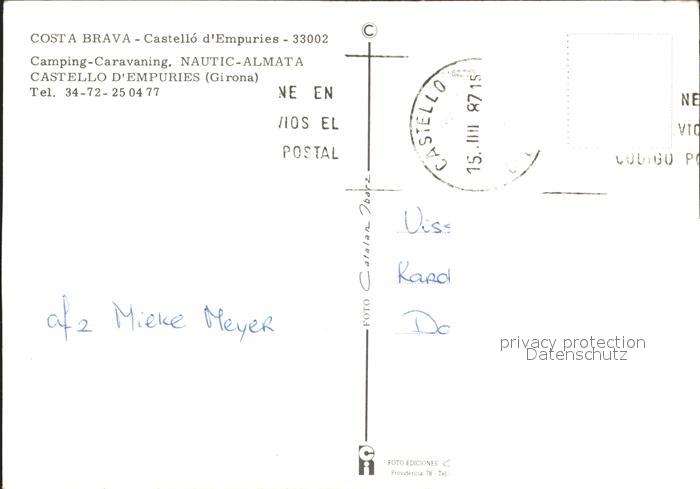 COSTA BRAVA - Castelló d'Empuries - 33002
Camping-Caravaning, NAUTIC-ALMATA
CASTELLO D'EMPURIES (Girona)
Tel. 34-72-25 04 77
NE EN
/IOS EL
POSTAL
©
CASTELLO
15. JUL 87 15
NE
VIO
CODIGO PO
FOTO Catalan Ibarz
Viss
Kard
Do
afz Mieke Meyer
privacy protection
Datenschutz
FOTO EDICIONES C
Providència 78 - Tel.